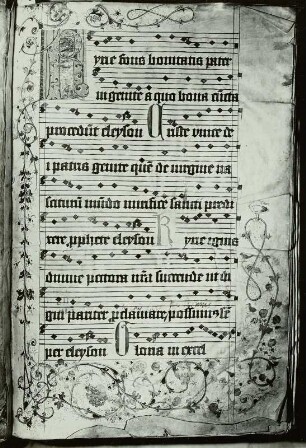 Kyrie fons bonitatis pater
ingenite a quo bona cūcta
procedūt eleyson Criste unice de
i patris genite quē de virgine na
sciturū mūdo mirifice sancti predi
xere prophete eleyson Kyrie ignis
divine pectora nrā succende ut di
gni pariter proclamare possimus sē
per eleyson Gloria in excel